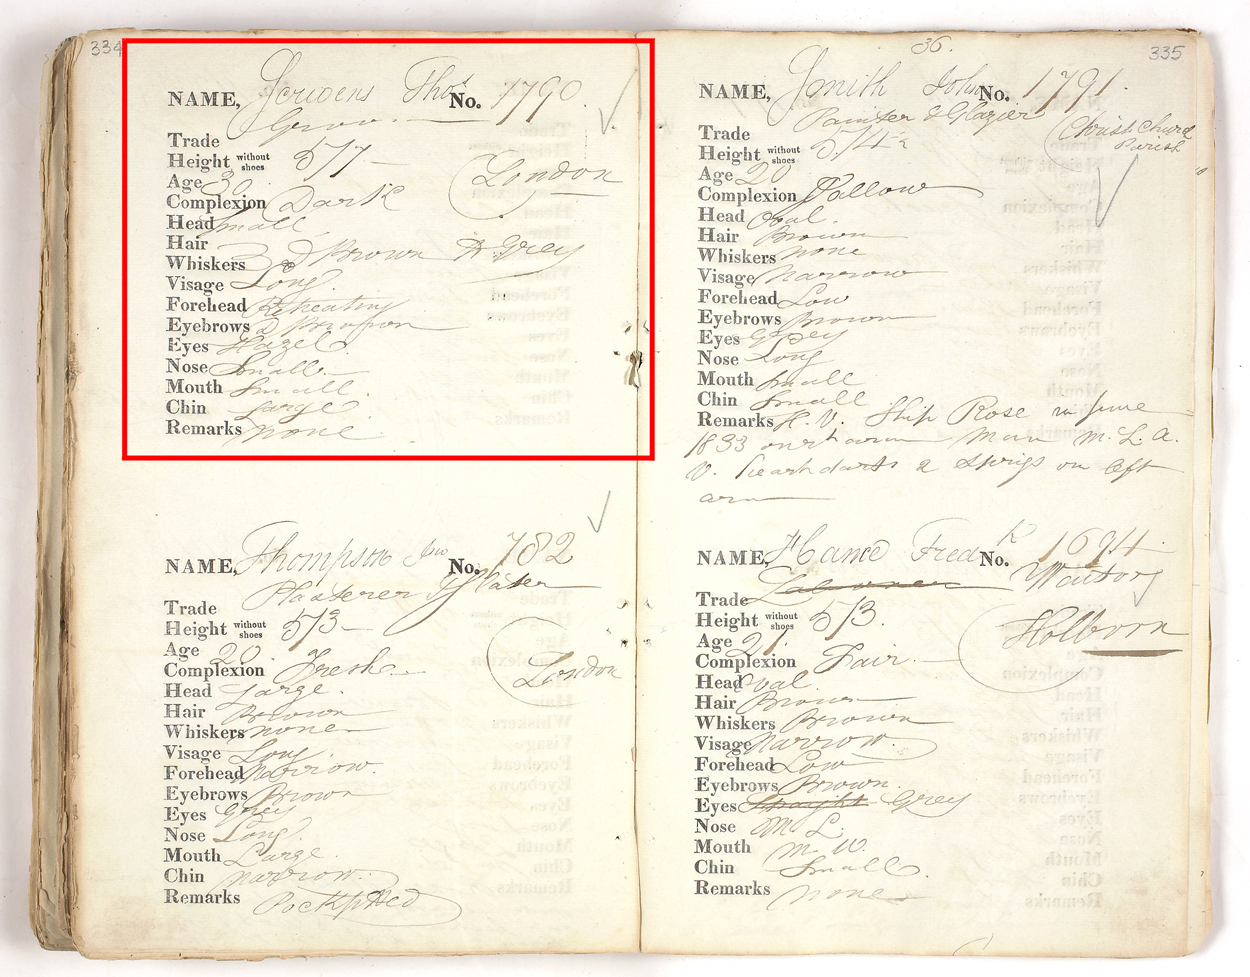 334
NAME, Thos No. 1790
Trade Groom
Height without shoes 5/7
Age 30
London
Complexion Dark
Head Small
Hair
Whiskers D Brown & Grey
Visage Long
Forehead Retreating
Eyebrows D Brown
Eyes Hazel
Nose Small
Mouth Small
Chin Large
Remarks None
NAME, Thompson Jno No. 782
Trade Plasterer & Slater
Height without shoes 5/3
Age 20
London
Complexion Fresh
Head Large
Hair Brown
Whiskers none
Visage Long
Forehead Narrow
Eyebrows Brown
Eyes Grey
Nose Long
Mouth Large
Chin narrow
Remarks Pockpitted
36.
335
NAME, Smith John No. 1791
Trade Painter & Glazier
Christ Church Parish
Height without shoes 5/4½
Age 20
Complexion Sallow
Head Oval
Hair Brown
Whiskers none
Visage Narrow
Forehead Low
Eyebrows Brown
Eyes Grey
Nose Long
Mouth Small
Chin Small
Remarks H. V. Ship Rose in June
1833 on rt arm Man M. L. A.
V. heart darts & sprigs on left
arm
NAME, Hance Fredk No. 1694
Trade Labourer
Height without shoes 5/3.
Age 21.
Holborn
Complexion Fair
Head Oval
Hair Brown
Whiskers Brown
Visage Narrow
Forehead Low
Eyebrows Brown
Eyes Straight Grey
Nose M L
Mouth M. W.
Chin Small
Remarks None